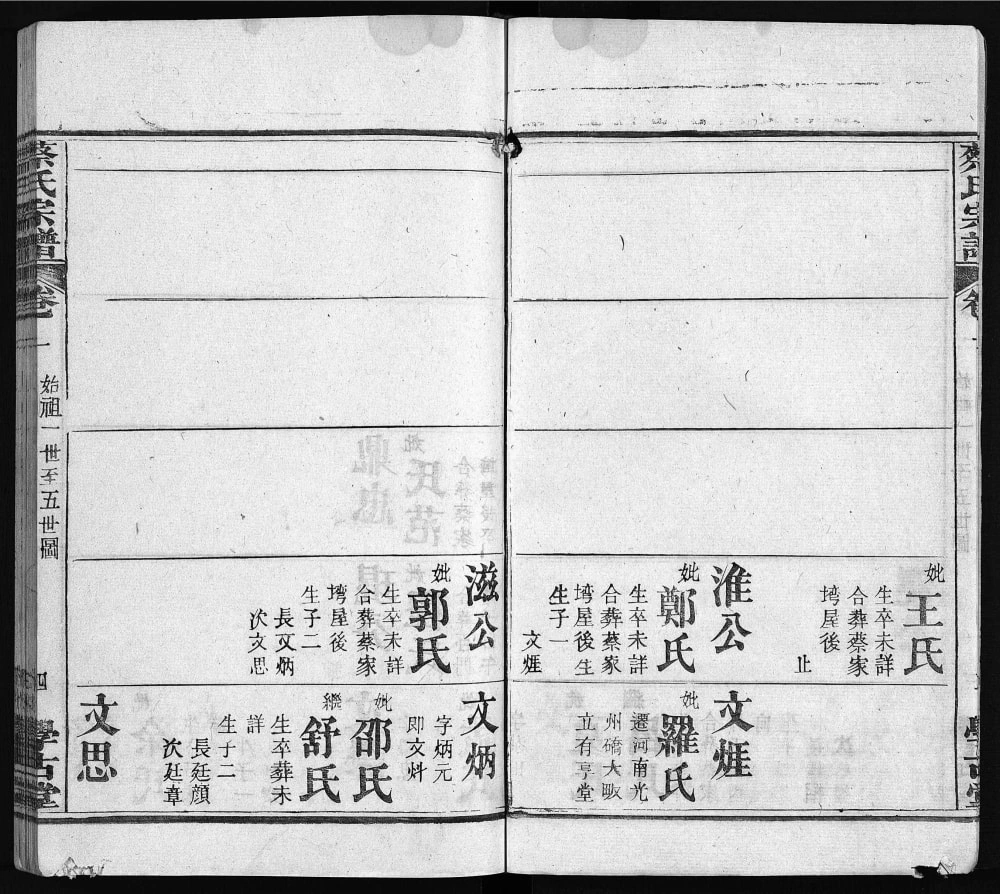 妣
王氏
生卒未詳
合葬蔡家
塆屋後
止
淮公
妣
鄭氏
生卒未詳
合葬蔡家
塆屋後生
生子一
文煃
文煃
妣
羅氏
遷河南光
州礄大畈
立有亨堂
滋公
妣
郭氏
生卒未詳
合葬蔡家
塆屋後
生子二
長文炳
次文思
文炳
字炳元
即文炓
妣
邵氏
繼
舒氏
生卒葬未
詳
生子二
長廷顔
次廷章
文思
蔡氏宗譜
卷一
始祖一世至五世圖
四
學古堂